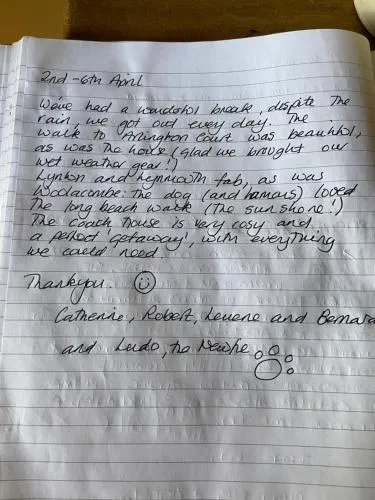 2nd - 6th April
We've had a wonderful break, dispite the
rain, we got out every day. The
walk to Arlington Court was beautiful,
as was the house! (glad we brought our
wet weather gear!)
Lynton and Lynmouth fab, as was
Woolacombe: the dog (and humans) loved
the long beach walk (The sun shone!)
The coach house is very cosy and
a perfect getaway, with everything
we could need.
Thankyou.
Catherine, Robert, and
and Ludo, the Newfie